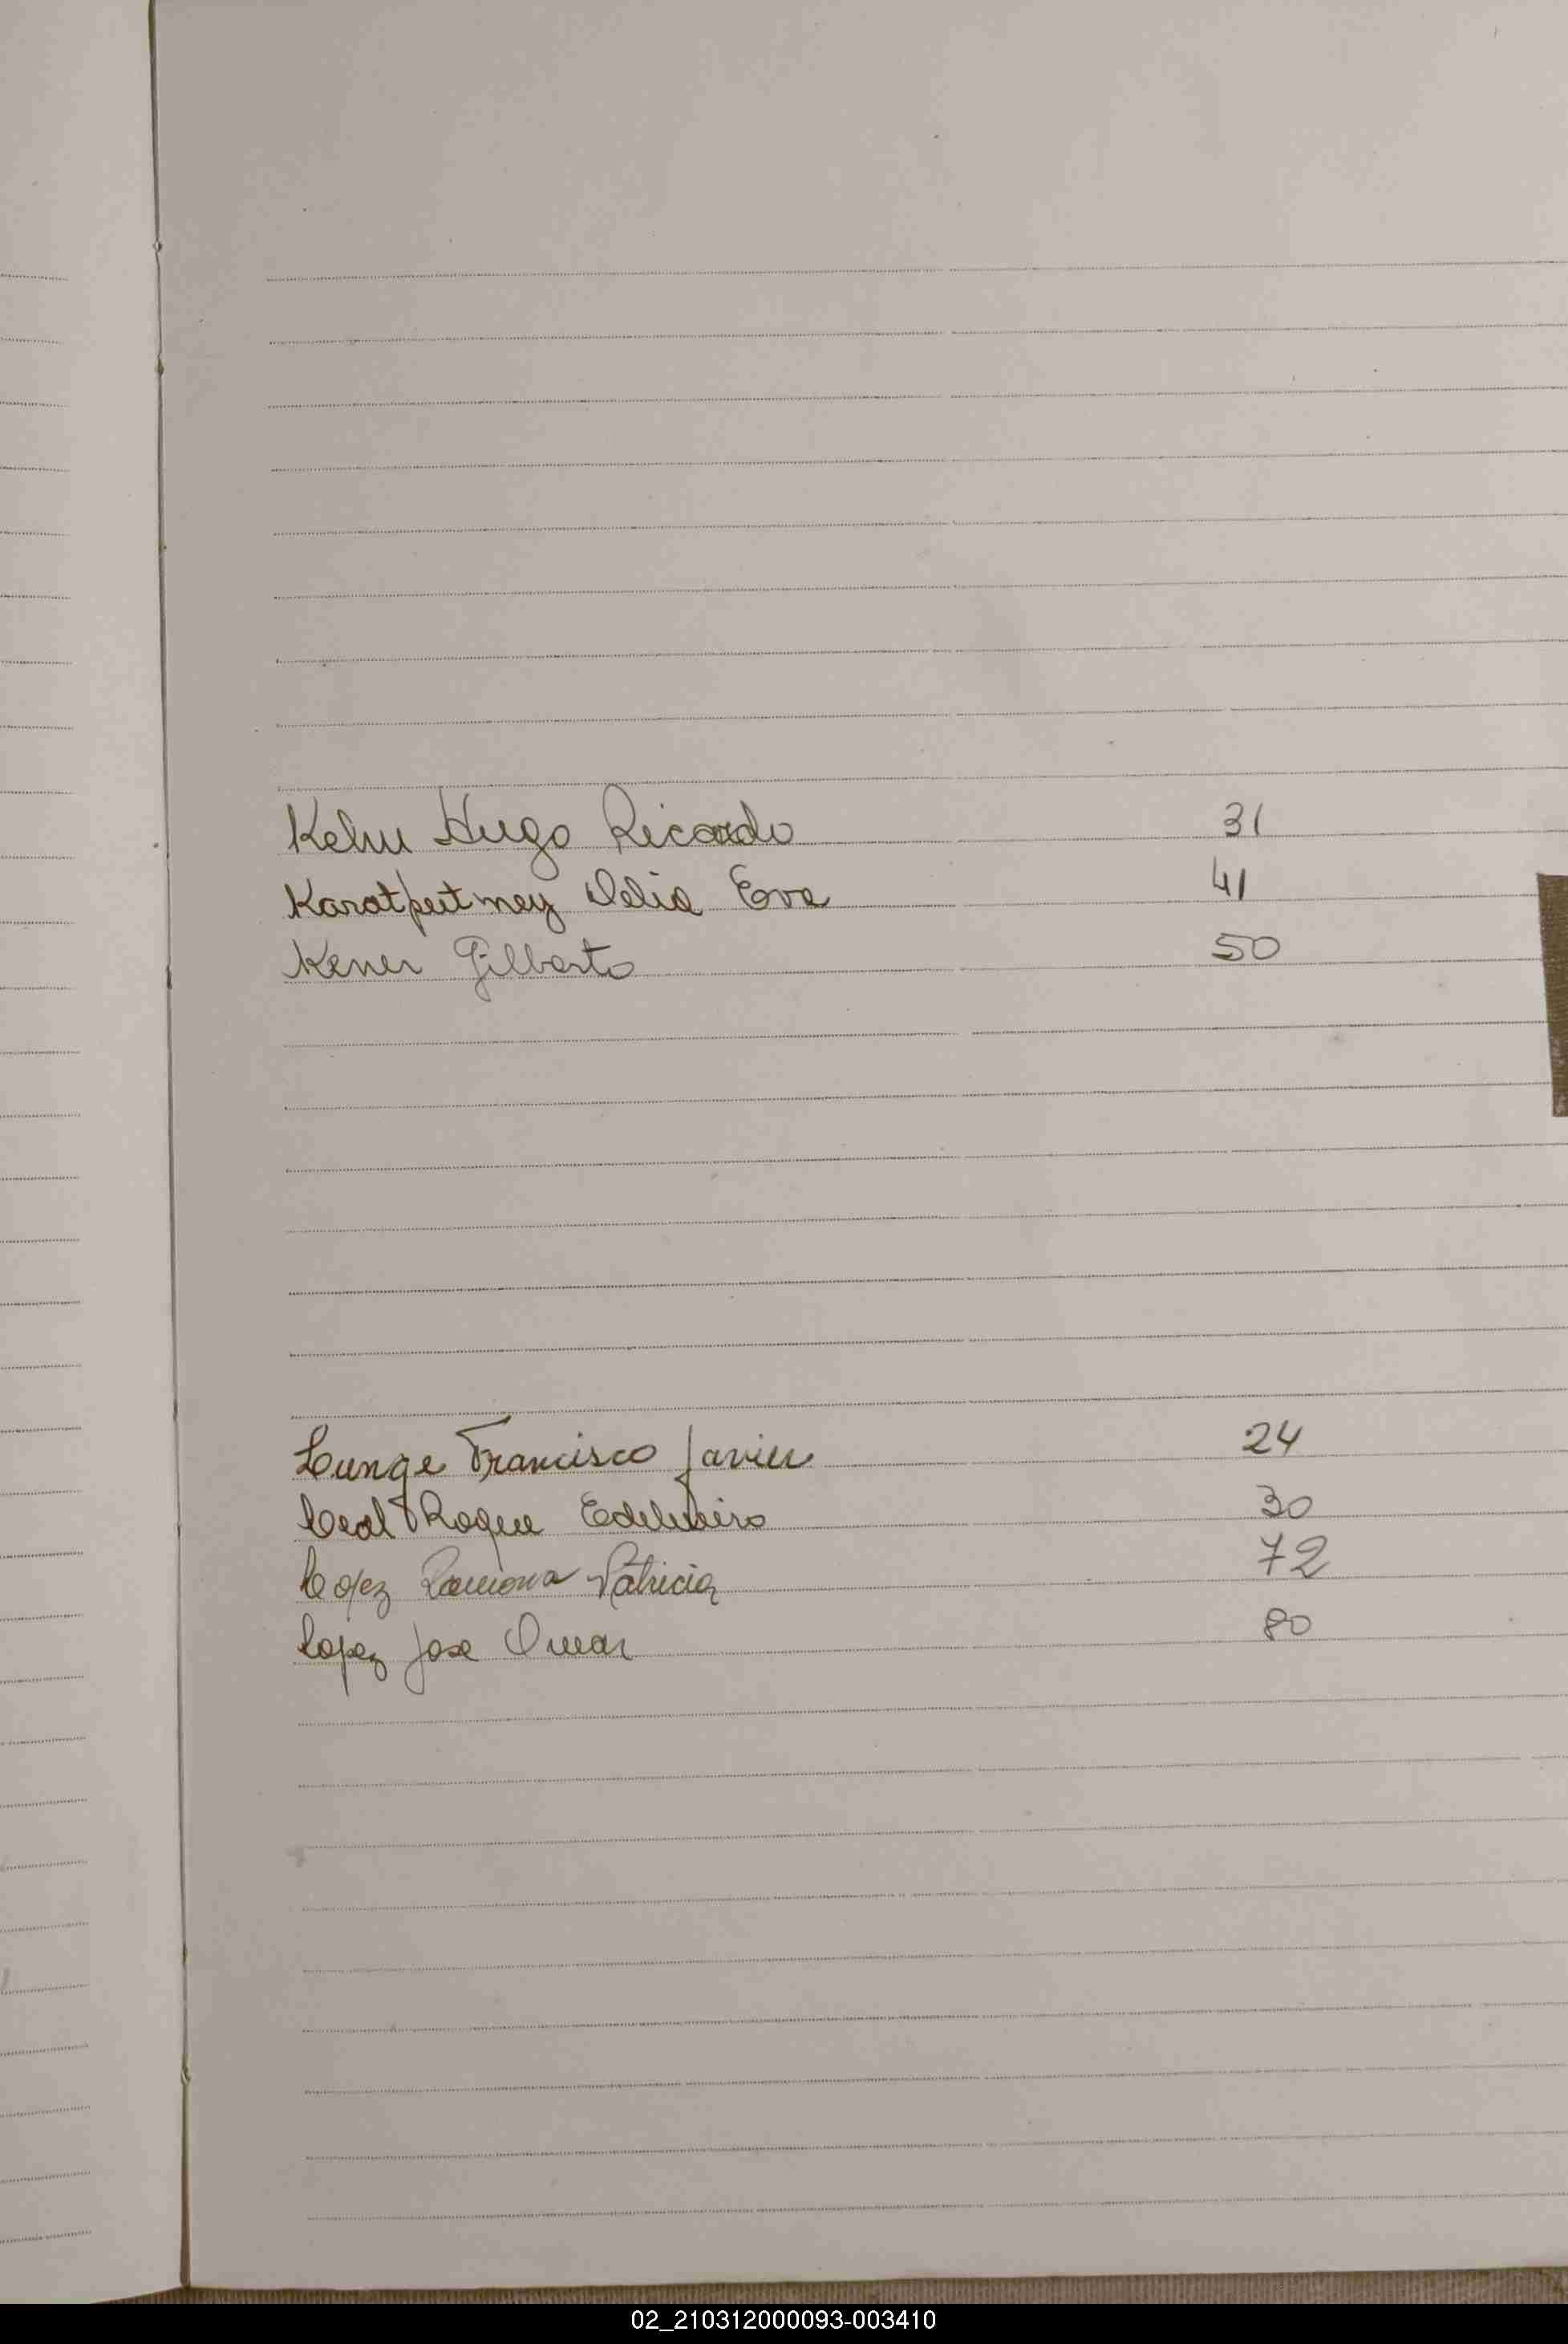 Kehu Hugo Ricardo 31
Delia Eva 41
Kener Gilberto 50
Lunge Francisco Javier 24
Leal Roque Edelmiro 30
Lopez Ramona Patricia 72
Lopez Jose Omar 80
02_210312000093-003410